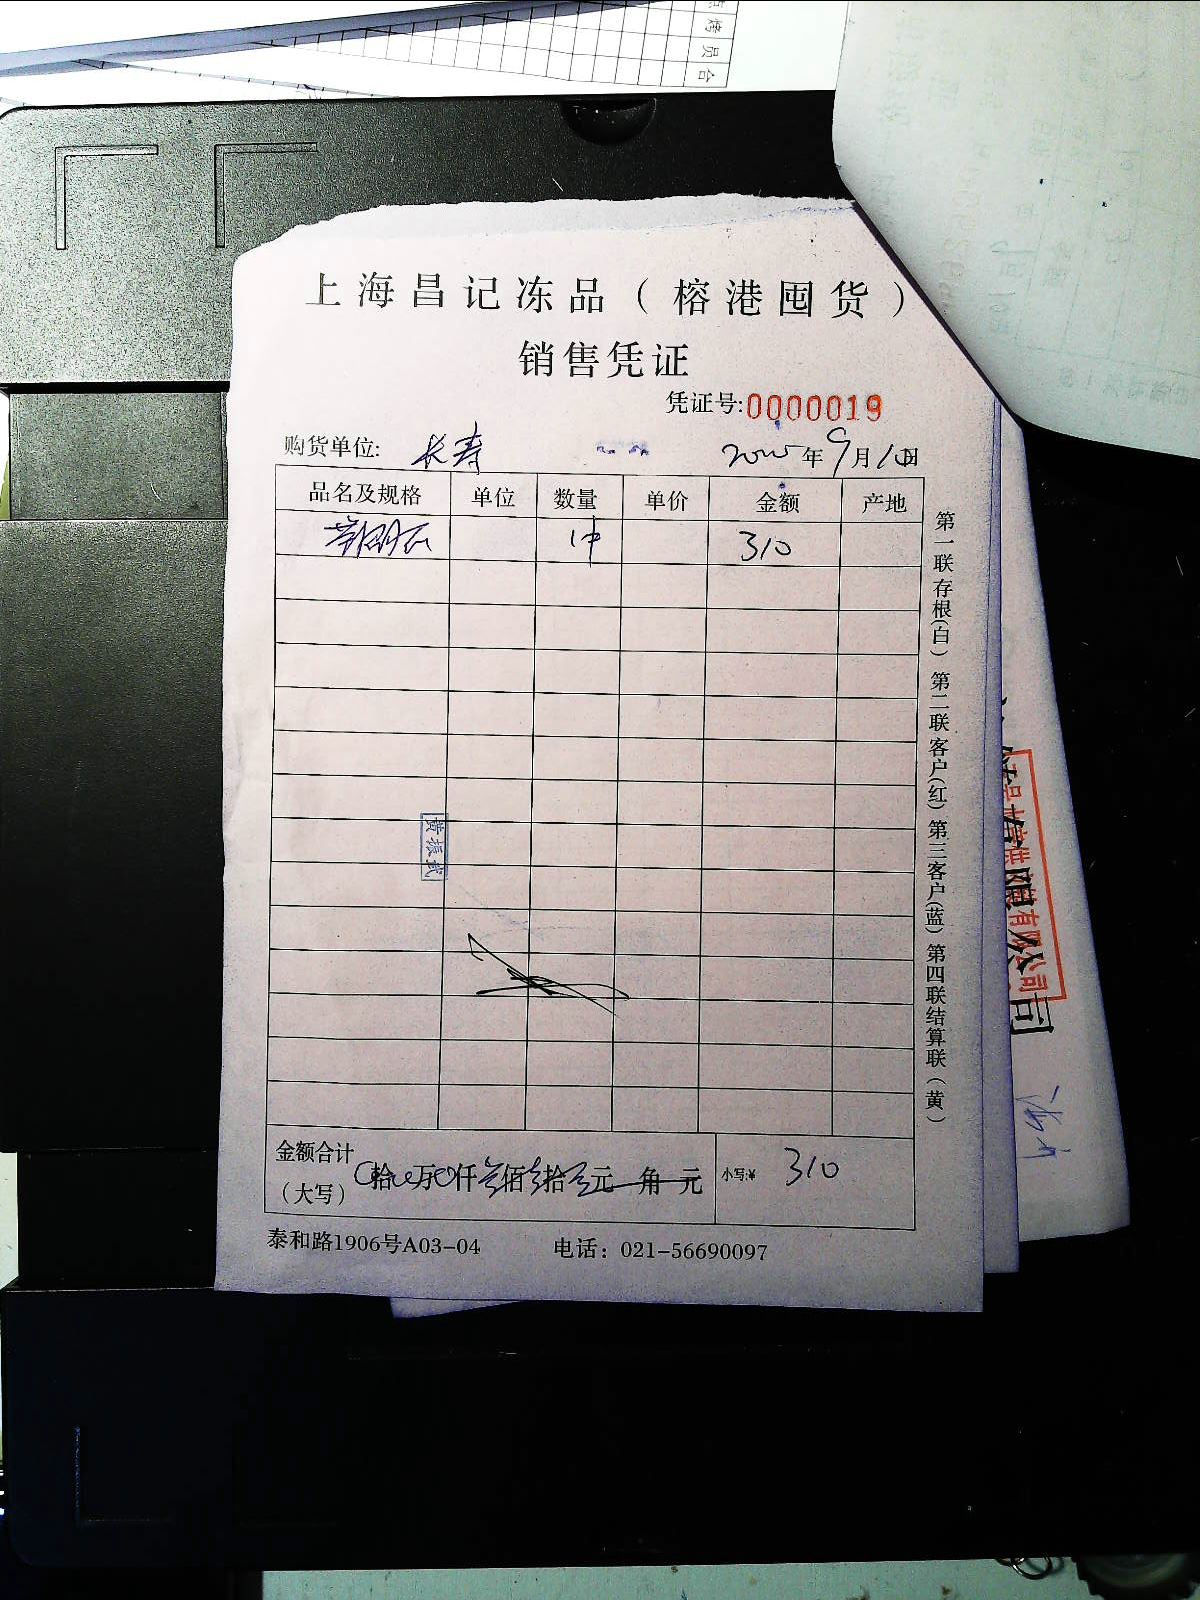 上海昌记冻品（榕港囤货）
销售凭证
凭证号:0000019
购货单位: 长寿 年9月10日
品名及规格 单位 数量 单价 金额 产地
1件 310
黄振武
金额合计
（大写） 拾 万 仟 叁佰 拾 元 角 元 小写:¥ 310
泰和路1906号A03-04 电话：021-56690097
第一联存根(白) 第二联客户(红) 第三客户(蓝) 第四联结算联(黄)
有限公司
限公司
员
合